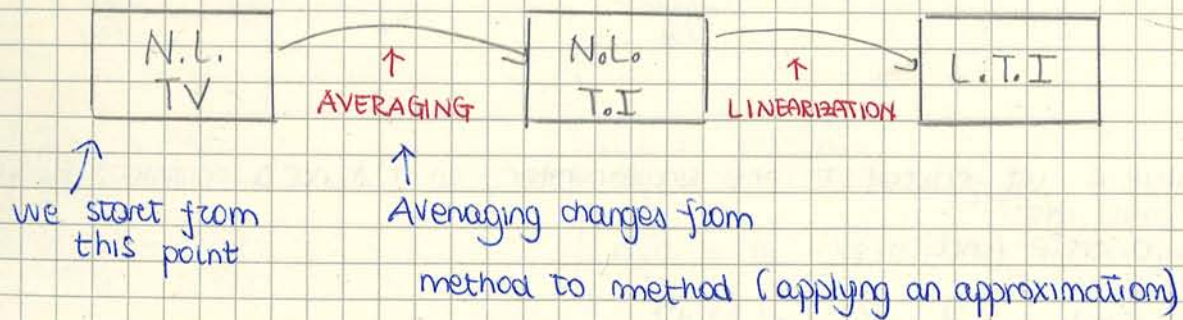 N.L.
TV
AVERAGING
N.L.
T.I
LINEARIZATION
L.T.I
we start from
this point
Averaging changes from
method to method (applyng an approximation)